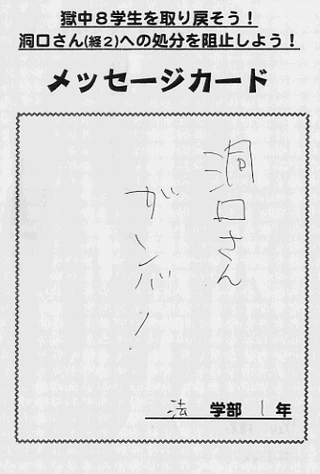 獄中８学生を取り戻そう！
洞口さん(経２)への処分を阻止しよう！
メッセージカード
洞口さん
ガンバ！
法 学部 1 年